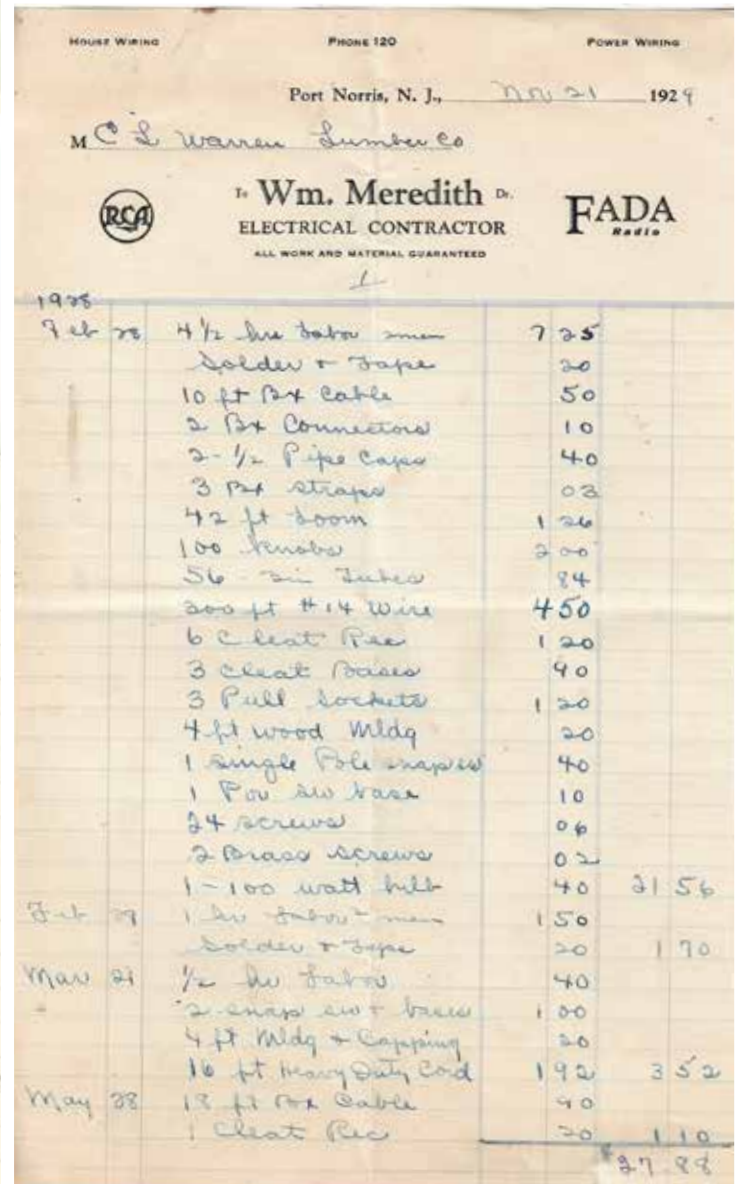 HOUSE WIRING PHONE 120 POWER WIRING
Port Norris, N. J., Nov 21 1929
M C L Warren Lumber Co
RCA To Wm. Meredith Dr. FADA Radio
ELECTRICAL CONTRACTOR
ALL WORK AND MATERIAL GUARANTEED
1
1928
Feb 28 4 1/2 hrs Labor 2 men 7 25
Solder + Tape 20
10 ft Bx Cable 50
2 Bx Connectors 10
2 - 1/2 Pipe Caps 40
3 Bx straps 03
42 ft Loom 1 26
100 Knobs 2 00
56 - 3in Tubes 84
300 ft #14 Wire 4 50
6 Cleat Rec 1 20
3 Cleat Bases 90
3 Pull Sockets 1 20
4 ft wood Mldg 20
1 single Pole snap sw 40
1 Por sw base 10
24 screws 06
2 Brass screws 02
1 - 100 watt bulb 40 21 56
Feb 29 1 hr Labor 2 men 1 50
Solder + Tape 20 1 70
Mar 21 1/2 hr Labor 40
2 snap sw + bases 1 00
4 ft Mldg + Capping 20
16 ft Heavy Duty Cord 1 92 3 52
May 28 18 ft Bx Cable 90
1 Cleat Rec 20 1 10
$27.88